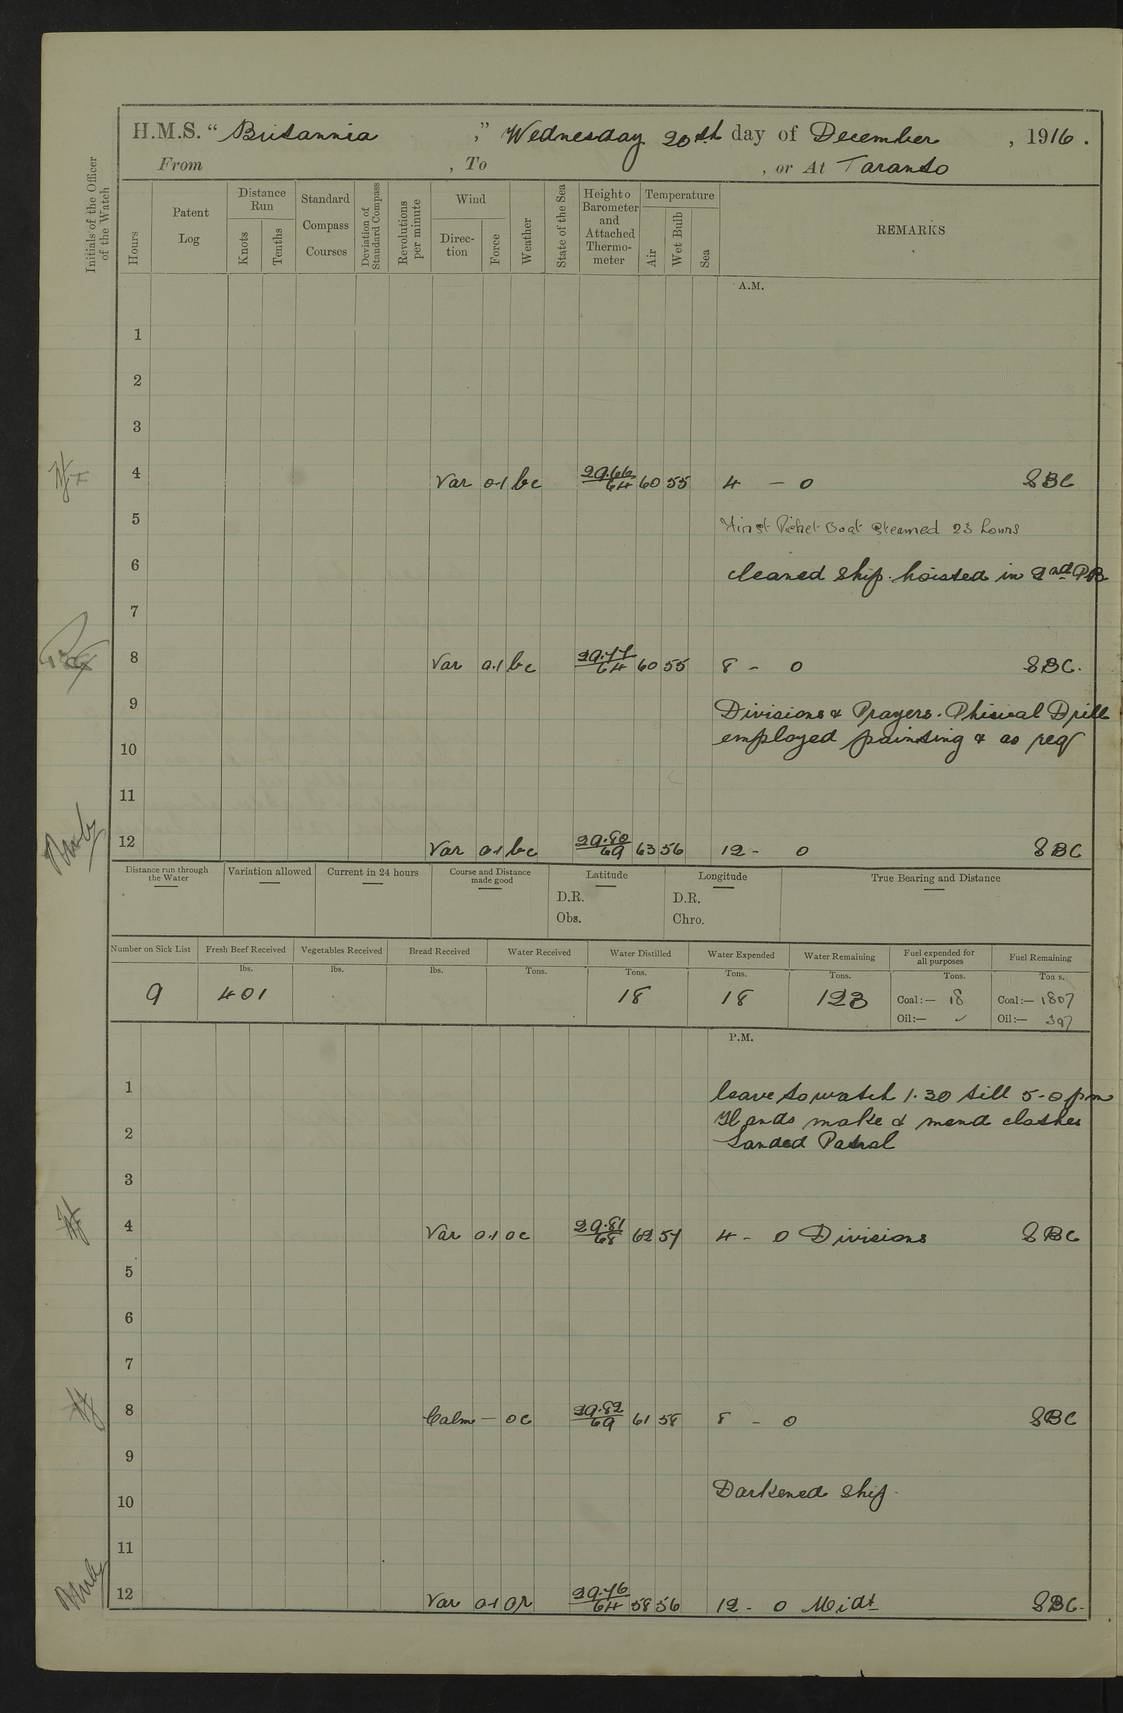 H.M.S. “ Britannia ,” Wednesday 20th day of December , 1916 .
From , To , or At Taranto
Initials of the Officer of the Watch
Hours
Patent Log
Distance Run
Knots
Tenths
Standard Compass Courses
Deviation of Standard Compass
Revolutions per minute
Wind
Direc- tion
Force
Weather
State of the Sea
Height o Barometer and Attached Thermo- meter
Temperature
Air
Wet Bulb
Sea
REMARKS
A.M.
1
2
3
4 Var 0.1 bc 29.66 64 60 55 4 - 0 SBC
5 First Picket Boat steamed 23 hours
6 cleaned ship. hoisted in 2nd PB
7
8 Var 0.1 bc 29.77 64 60 55 8 - 0 SBC.
9 Divisions & Prayers. Phisical Drill
10 employed painting & as req
11
12 Var 0.1 bc 29.80 69 63 56 12 - 0 SBC
Distance run through the Water
Variation allowed
Current in 24 hours
Course and Distance made good
Latitude
D.R.
Obs.
Longitude
D.R.
Chro.
True Bearing and Distance
Number on Sick List Fresh Beef Received Vegetables Received Bread Received Water Received Water Distilled Water Expended Water Remaining Fuel expended for all purposes Fuel Remaining
lbs. lbs. lbs. Tons. Tons. Tons. Tons. Tons. Tons.
9 401 18 18 123 Coal:— 18 Coal:— 1807
Oil:— ✓ Oil:— 397
P.M.
1 leave to watch 1.30 till 5-0 pm
Hands make & mend clothes
2 Landed Patrol
3
4 Var 0.1 oc 29.81 68 62 57 4 - 0 Divisions SBC
5
6
7
8 Calm — oc 29.82 69 61 58 8 - 0 SBC
9
10 Darkened ship.
11
12 Var 0.1 or 29.76 64 58 56 12 - 0 Midt SBC.